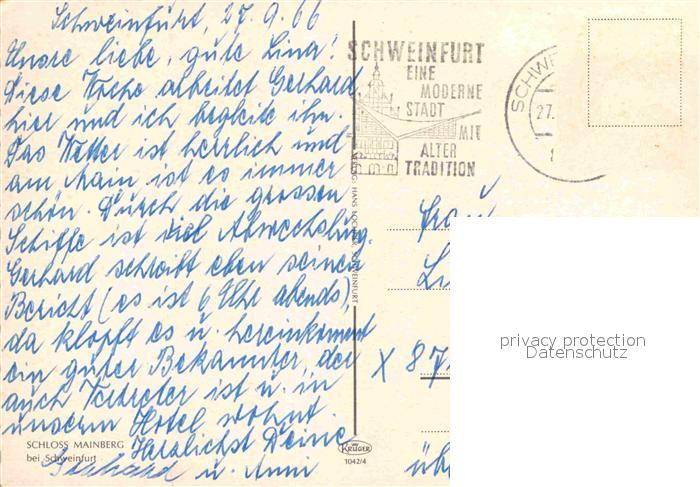 Schweinfurt, 27.9.66
Unsre liebe, gute Lina!
Diese Woche arbeitet Gerhard
hier und ich begleite ihn.
Das Wetter ist herrlich und
am Main ist es immer
schön. Durch die grossen
Schiffe ist viel Abwechslung.
Gerhard schreibt eben seinen
Bericht (es ist 6 Uhr abends),
da klopft es u. hereinkommt
ein guter Bekannter, der
auch Vertreter ist u. in
unserm Hotel wohnt.
Herzlichst Deine
Gerhard u. Anni
SCHLOSS MAINBERG
bei Schweinfurt
SCHWEINFURT
EINE
MODERNE
STADT
MIT
ALTER
TRADITION
SCHWE
27.
HANS
SCHWEINFURT
KRÜGER
1042/4
Frau
X 87
üb
privacy protection
Datenschutz